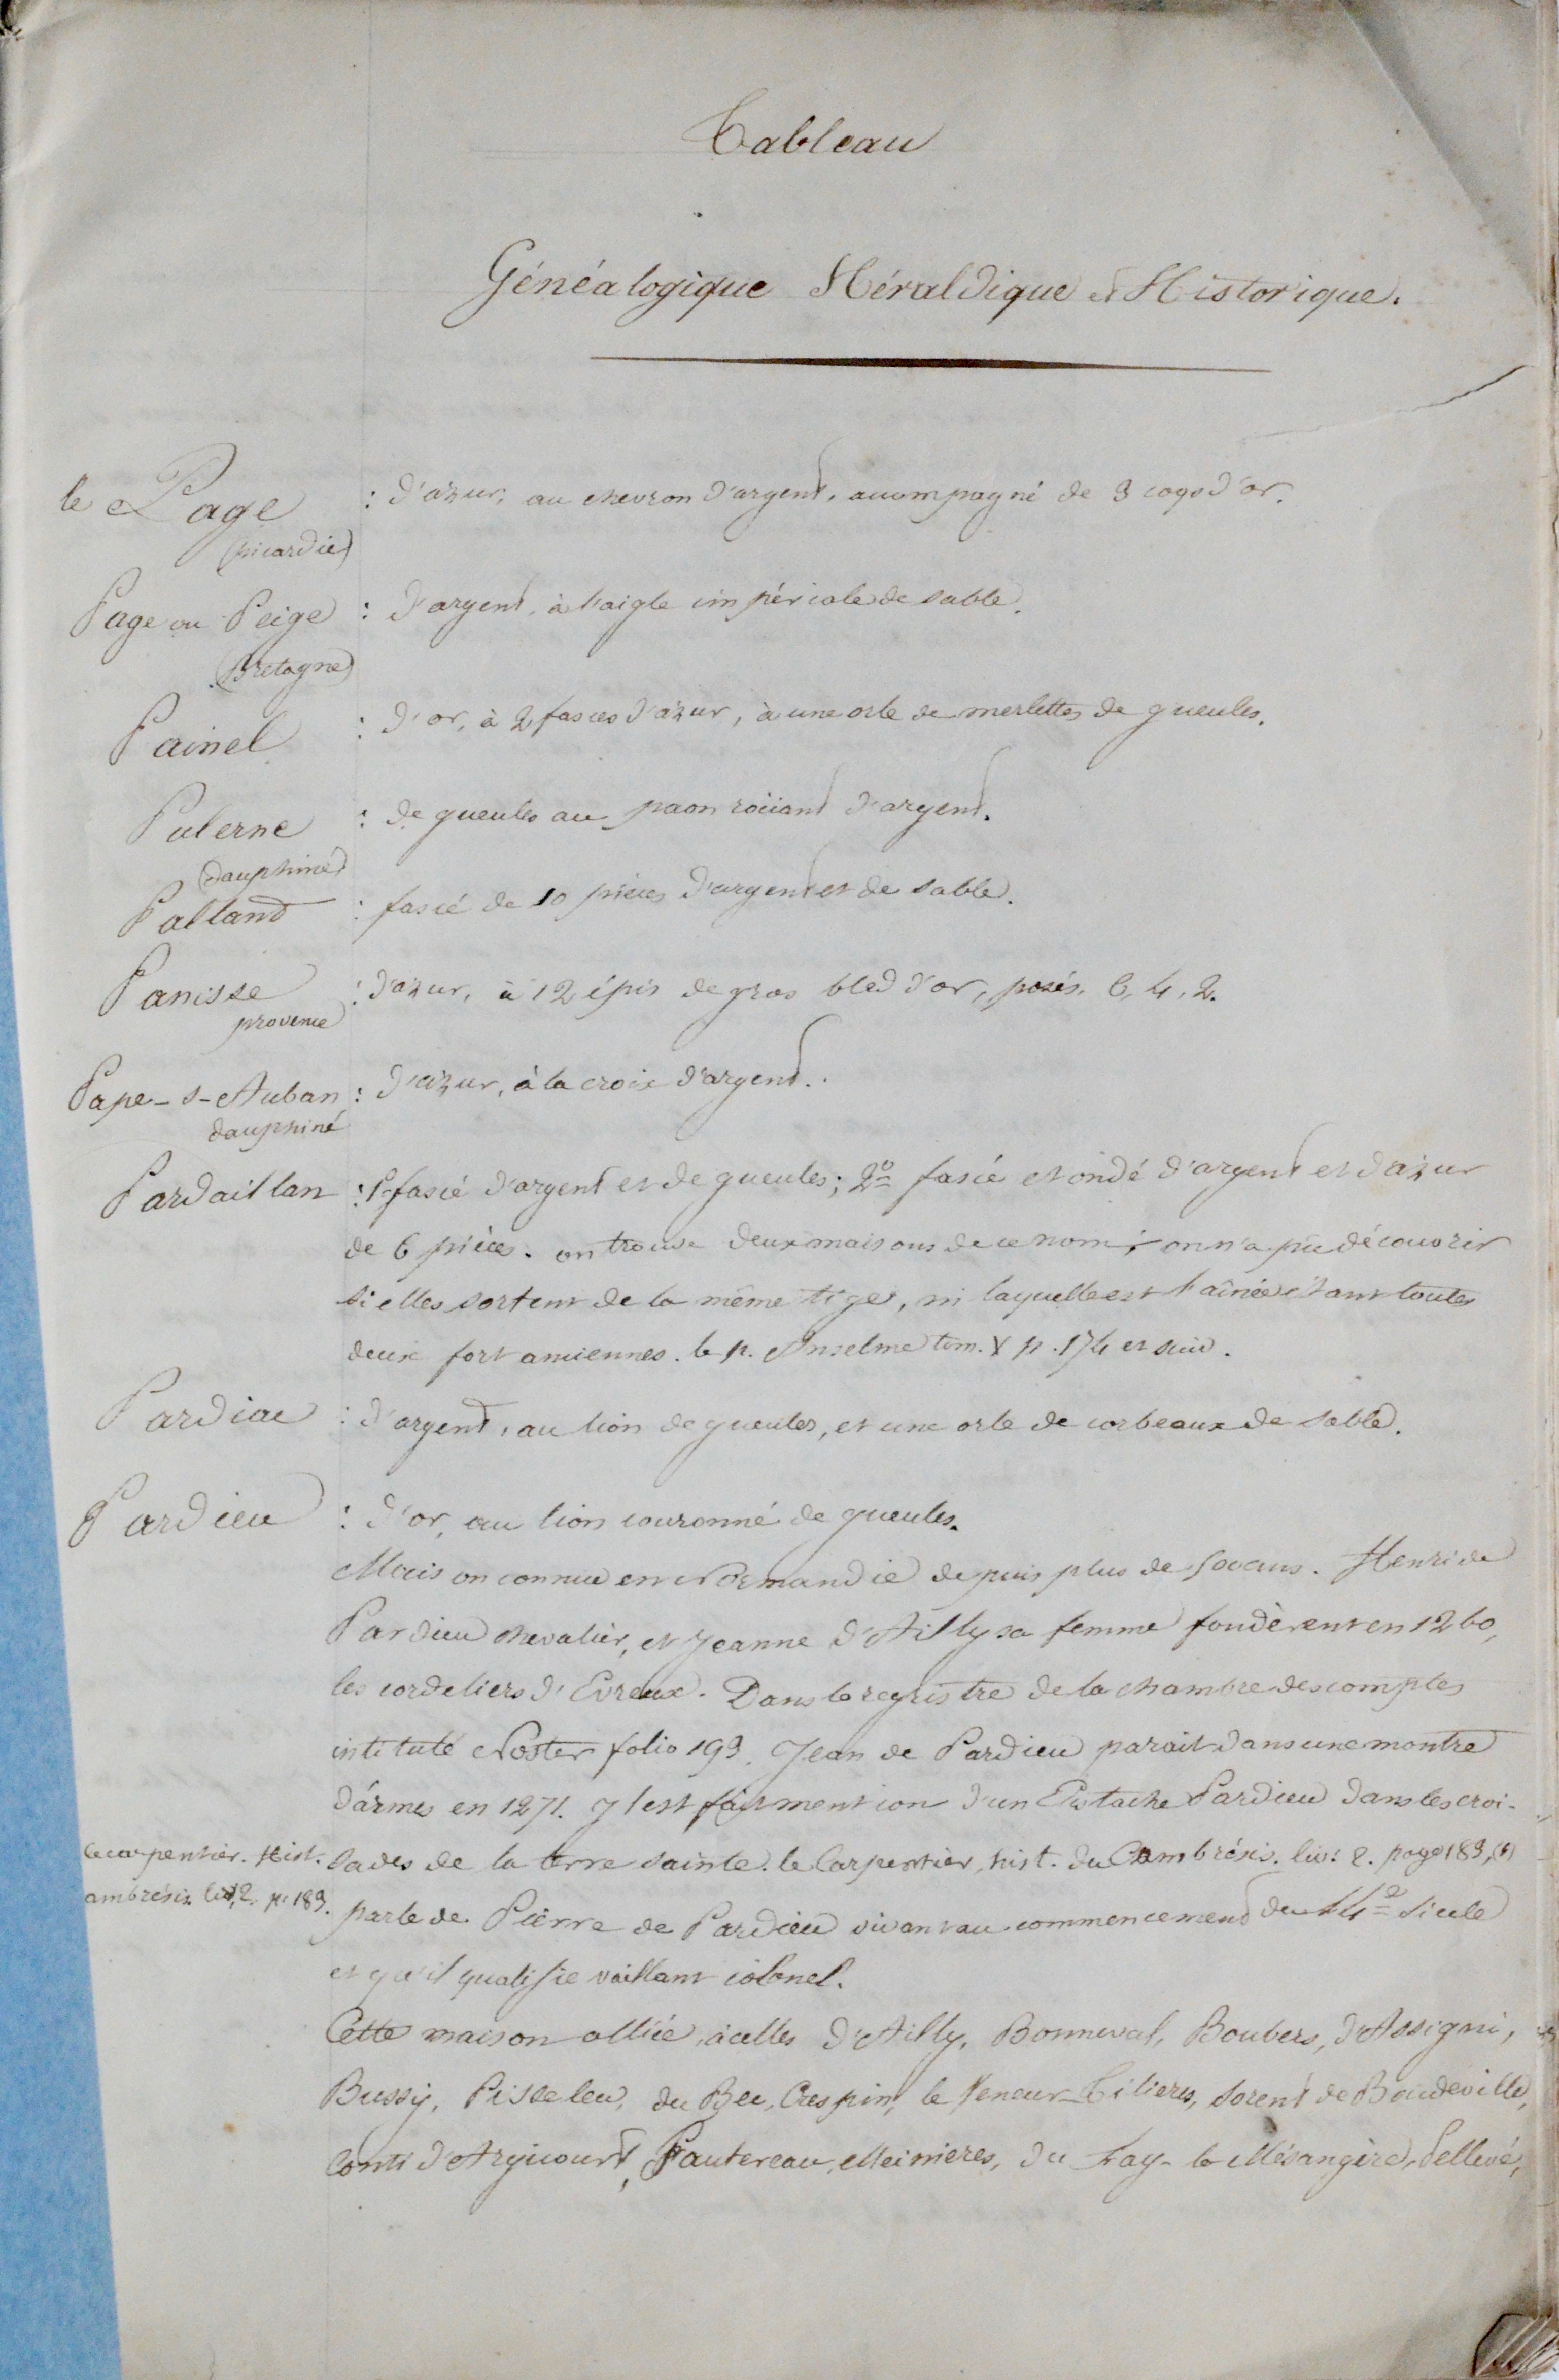 Tableau
Généalogique Héraldique et Historique.
le Page : d'azur, au chevron d'argent, accompagné de 3 coqs d'or.
(picardie)
Page ou Peige : d'argent, à l'aigle impériale de sable.
(Bretagne)
Painel : d'or, à 2 fasces d'azur, à une orle de merlettes de gueules.
Palerne : de gueules au paon roüant d'argent.
(dauphiné)
Palland : fascé de 10 pièces d'argent et de sable.
Panisse : d'azur, à 12 épis de gros bled d'or, posés, 6, 4, 2.
provence
Pape-S-Auban : d'azur, à la croix d'argent.
dauphiné
Pardaillan : 1º fascé d'argent et de gueules; 2º fascé et ondé d'argent et d'azur
de 6 pièces. on trouve deux maisons de ce nom; on n'a pu découvrir
si elles sortent de la même tige, ni laquelle est l'aînée étant toutes
deux fort anciennes. le p. Anselme tom. V p. 174 et suiv.
Pardiac : d'argent, au lion de gueules, et une orle de corbeaux de sable.
Pardieu : d'or, au lion couronné de gueules.
Maison connue en Normandie depuis plus de 500 ans. Henri de
Pardieu chevalier, et Jeanne d'Ailly sa femme fondèrent en 1260,
les cordeliers d'Evreux. Dans le registre de la chambre des comptes
intitulé Noster folio 193. Jean de Pardieu parait dans une montre
d'armes en 1271. Il est fait mention d'un Eustache Pardieu dans les croi-
sades de la terre sainte. le Carpentier, hist. du Cambrésis. liv. 2. page 189, (1)
lecarpentier. Hist.
ambrésis liv, 2. p. 189.
parle de Pierre de Pardieu vivant au commencement du 14e siecle
et qu'il qualifie vaillant colonel.
Cette maison alliée à celles d'Ailly, Bonneval, Boubers, d'Assigni,
Bussy, Pisseleu, du Bec, Crespin, le Veneur-Tilieres, Sorent de Boudeville,
Conti d'Argicourt, Pautereau, Meinieres, du Fay- la Mésangère, Pellevé,